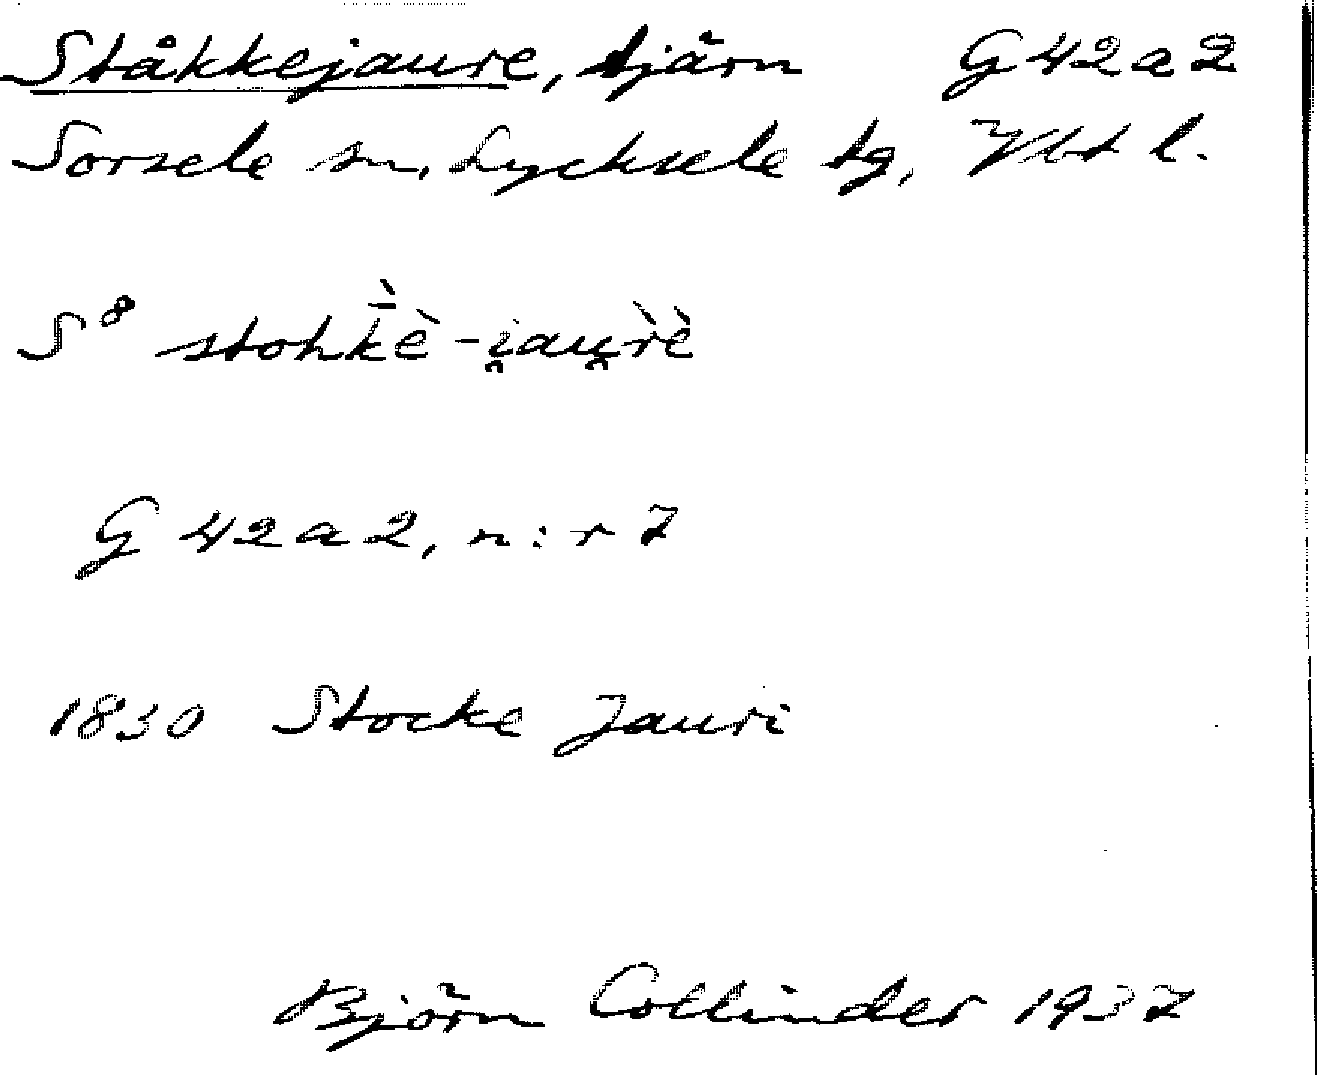 Ståkkejaure, tjärn G 42 a 2
Sorsele sn, Lycksele tg, Vbt l.
S⁸ stohk̄̀è-i̯au̯r̀è
G 42 a 2, n:r 7
1830 Stocke Jauri
Björn Collinder 1937